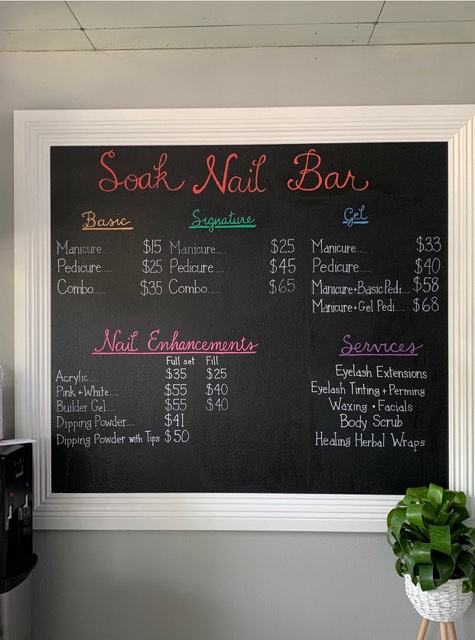 Soak Nail Bar
Basic
Manicure..... $15
Pedicure..... $25
Combo...... $35
Signature
Manicure..... $25
Pedicure..... $45
Combo..... $65
Gel
Manicure..... $33
Pedicure..... $40
Manicure+Basic Pedi.... $58
Manicure+Gel Pedi.... $68
Nail Enhancements
Full set Fill
Acrylic.... $35 $25
Pink+White.... $55 $40
Builder Gel.... $55 $40
Dipping Powder.... $41
Dipping Powder with Tips $50
Services
Eyelash Extensions
Eyelash Tinting + Perming
Waxing • Facials
Body Scrub
Healing Herbal Wraps